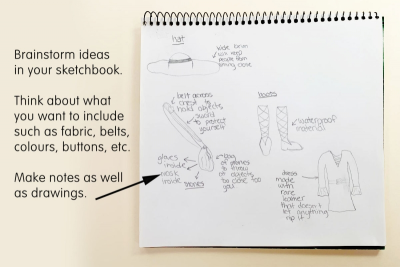 Brainstorm ideas
in your sketchbook.
Think about what
you want to include
such as fabric, belts,
colours, buttons, etc.
Make notes as well
as drawings.
hat
wide brim
will keep
people from
coming close
belt across
chest to
hold objects,
sword
to protect
yourself
gloves
inside
mask
inside
stones
bag
of stones
to throw
at objects
to close to
you
Boots
waterproof
material
dress
made
with
rare
leather
that doesn't
let anything
rip it